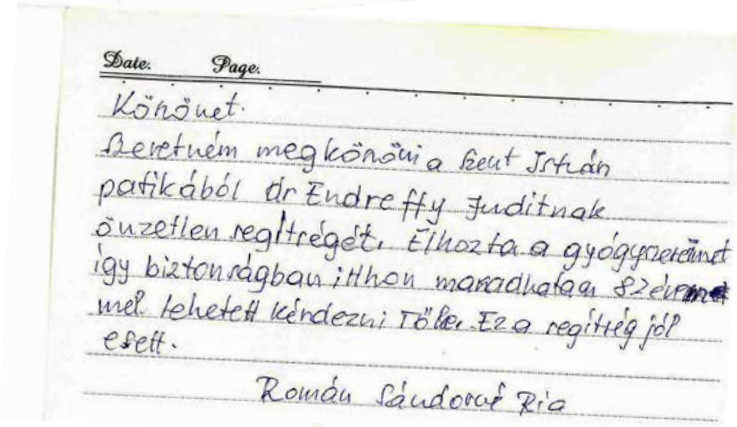 Date. Page.
Könönet.
Szeretném megkönöni a Szent István
patikából dr Endreffy Juditnak
önzetlen segítségét. Elhozta a gyógyszereimet
így biztonságban itthon maradhatam 82 évem
mel lehetett kérdezni Tőle. Ez a segítség jól
esett.
Román Sándorné Ria